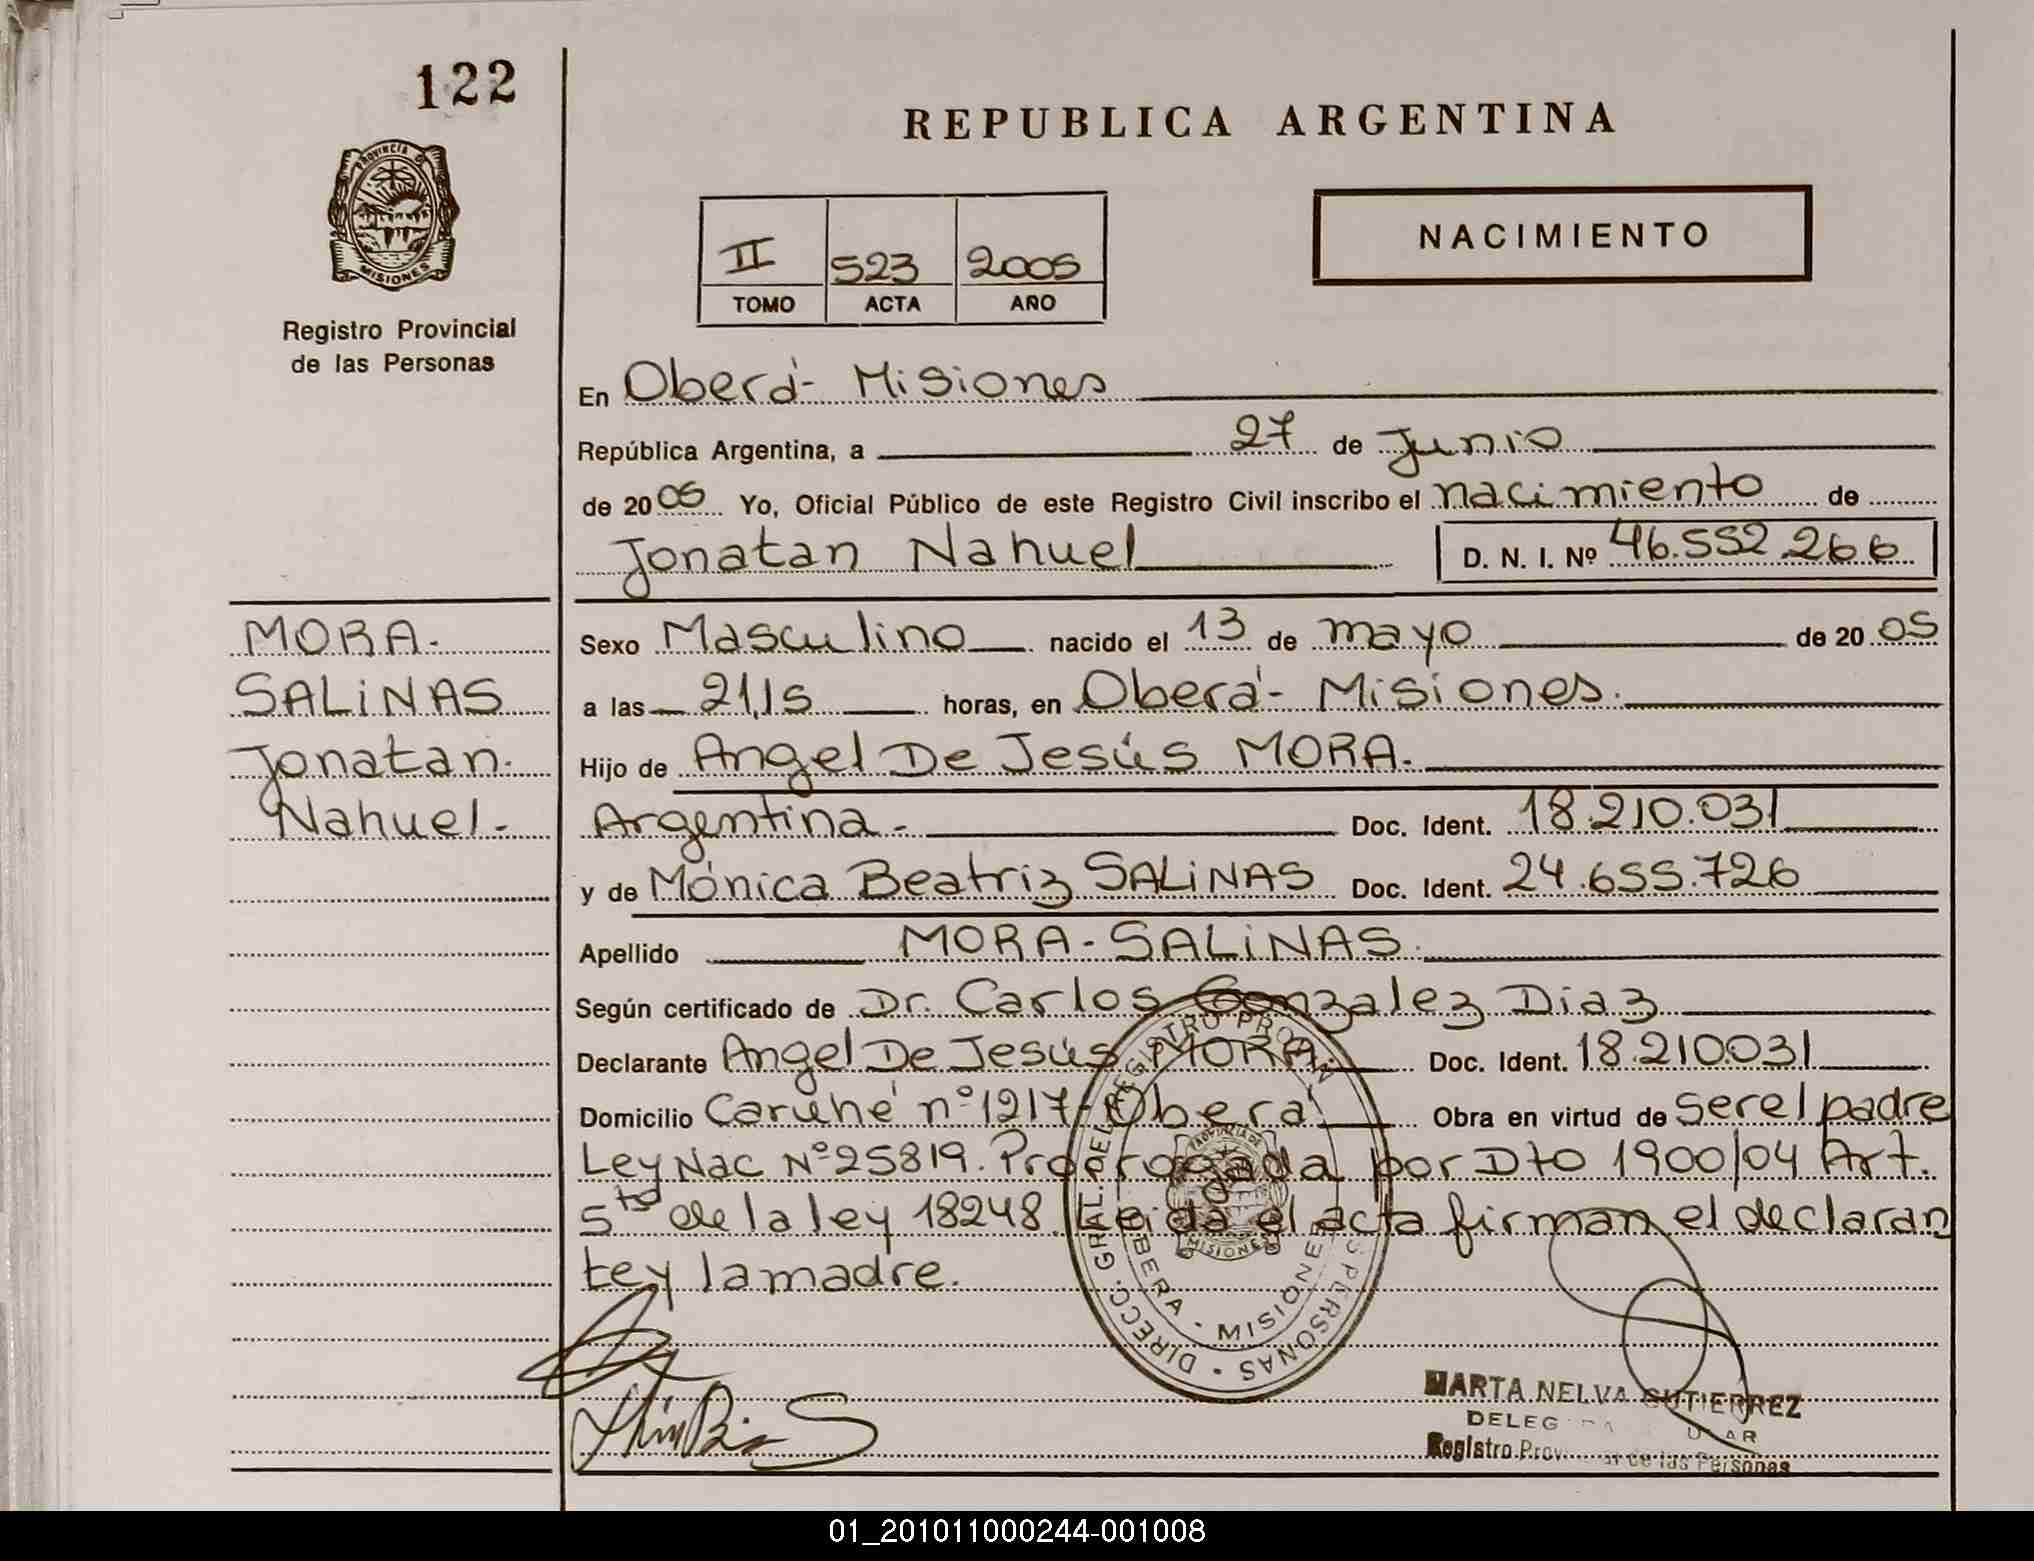 122
PROVINCIA DE
MISIONES
Registro Provincial
de las Personas
REPUBLICA ARGENTINA
II 523 2005
TOMO ACTA AÑO
NACIMIENTO
En Oberá- Misiones
República Argentina, a 27 de Junio
de 2005 Yo, Oficial Público de este Registro Civil inscribo el nacimiento de
Jonatan Nahuel D. N. I. Nº 46.552.266
MORA-
SALiNAS
Jonatan
Nahuel-
Sexo Masculino nacido el 13 de mayo de 2005
a las 21,15 horas, en Oberá- Misiones.
Hijo de Angel De Jesús MORA.
Argentina- Doc. Ident. 18.210.031
y de Mónica Beatriz SALiNAS Doc. Ident. 24.655.726
Apellido MORA-SALiNAS.
Según certificado de Dr. Carlos Gonzalez Diaz
Declarante Angel De Jesús MORA. Doc. Ident. 18.210031
Domicilio Caruhé nº1217-Oberá Obra en virtud de ser el padre
Ley Nac Nº25819. Prorrogada por Dto 1900/04 Art.
5to de la ley 18248. Leida el acta firman el declaran
te y la madre.
DIRECC. GRAL. DEL REGISTRO PROVIN PERSONAS
OBERA - MISIONES
PROVINCIA DE
MISIONES
MARTA NELVA GUTIERREZ
Registro Prov de las Personas
01_201011000244-001008